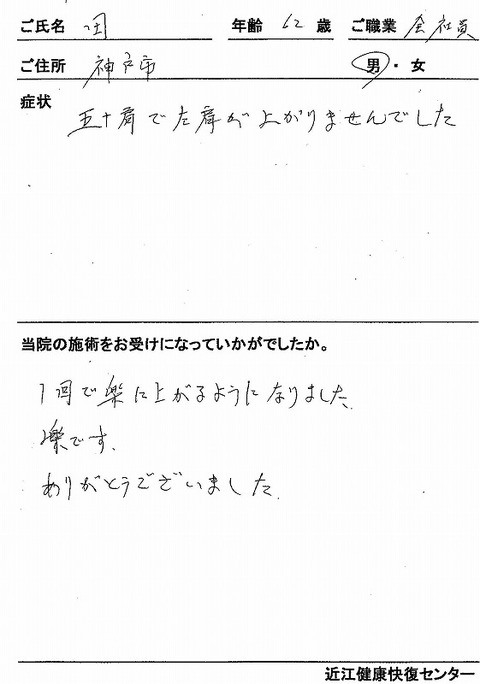 ご氏名 年齢 62 歳 ご職業 会社員
ご住所 神戸市 男・女
症状
五十肩で左肩が上がりませんでした
当院の施術をお受けになっていかがでしたか。
1回で楽に上がるようになりました。
楽です。
ありがとうございました。
近江健康快復センター